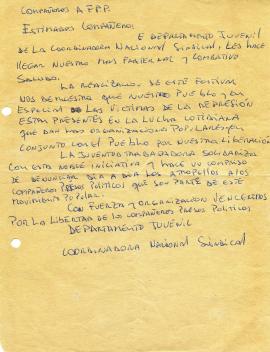 COMPAÑEROS AFPP.
ESTIMADOS COMPAÑEROS:
E DEPARTAMENTO JUVENIL
DE LA COORDINADORA NACIONAL SINDICAL, LES HACE
LLEGAR NUESTRO MAS FRATERNAL Y COMBATIVO
SALUDO.
LA REALIZACION DE ESTE FESTIVAL
NOS DEMUESTRA QUE NUESTRO PUEBLO Y EN
ESPECIAL LAS VICTIMAS DE LA REPRESIÓN
ESTAN PRESENTES EN LA LUCHA COTIDIANA
QUE DAN LAS ORGANIZACIONES POPULARES EN
CONJUNTO CON EL PUEBLO POR NUESTRA LIBERACIÓN
LA JUVENTUD TRABAJADORA SOLIDARIZA
CON ESTA NOBLE INICIATIVA Y HACE UN COMPROMISO
DE DENUNCIAR DIA A DIA LOS ATROPELLOS A LOS
COMPAÑEROS PRESOS POLITICOS QUE SON PARTE DE ESTE
MOVIMIENTO POPULAR.
CON FUERZA Y ORGANIZACION VENCEREMOS
POR LA LIBERTAD DE LOS COMPAÑEROS PRESOS POLITICOS
DEPARTAMENTO JUVENIL
COORDINADORA NACIONAL SINDICAL